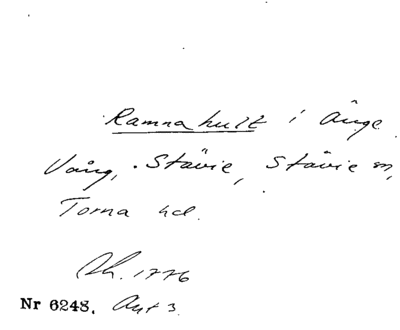 Ramnahult i Änge
Vång, Stävie, Stävie sn,
Torna hd.
Sk. 1776
Nr 6248. Akt 3.